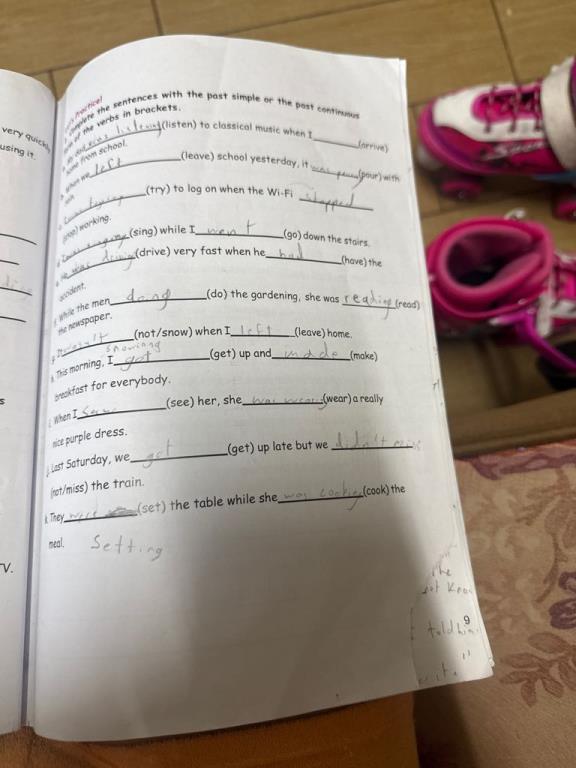 very quickly
using it.
TV.
Let's Practice!
Complete the sentences with the past simple or the past continuous
of the verbs in brackets.
was listening (listen) to classical music when I ______ (arrive)
home from school.
When we left (leave) school yesterday, it was pouring (pour) with
rain.
(try) to log on when the Wi-Fi stopped
(stop) working.
(sing) while I went (go) down the stairs.
e. He was driving (drive) very fast when he had (have) the
accident.
f. While the men dong (do) the gardening, she was reading (read)
the newspaper.
g. It wasn't (not/snow) when I left (leave) home.
snowing
h. This morning, I got (get) up and made (make)
breakfast for everybody.
i. When I saw (see) her, she was wearing (wear) a really
nice purple dress.
j. Last Saturday, we got (get) up late but we didn't miss
(not/miss) the train.
k. They were (set) the table while she was cooking (cook) the
meal. Setting
9